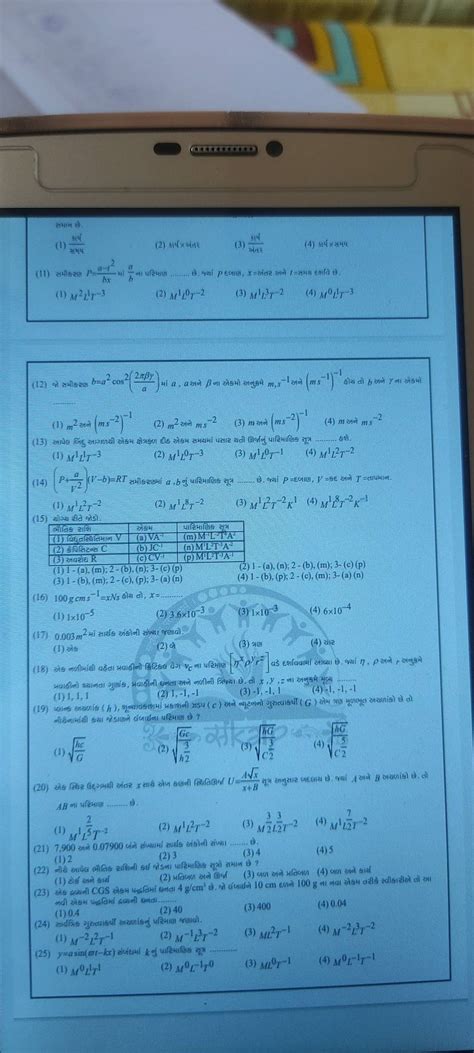 સમાન છે.
(1) કાર્ય/સમય (2) કાર્ય×અંતર (3) કાર્ય/અંતર (4) કાર્ય×સમય
(11) સમીકરણ P=a-t²/bx માં a/b ના પરિમાણ ......... છે. જ્યાં P દબાણ, x=અંતર અને t=સમય દર્શાવે છે.
(1) M²L¹T⁻³ (2) M¹L⁰T⁻² (3) M¹L³T⁻² (4) M⁰L¹T⁻³
(12) જો સમીકરણ b=a² cos²(2πβγ/a) માં a , α અને β ના એકમો અનુક્રમે m, s⁻¹ અને (ms⁻¹)⁻¹ હોય તો b અને γ ના એકમો
.........
(1) m² અને (ms⁻²)⁻¹ (2) m² અને ms⁻² (3) m અને (ms⁻²)⁻¹ (4) m અને ms⁻²
(13) આપેલ બિંદુ આગળથી એકમ ક્ષેત્રફળ દીઠ એકમ સમયમાં પસાર થતી ઊર્જાનું પારિમાણિક સૂત્ર ......... હશે.
(1) M¹L¹T⁻³ (2) M¹L⁰T⁻³ (3) M¹L⁰T⁻¹ (4) M¹L²T⁻²
(14) (P+a/V²)(V-b)=RT સમીકરણમાં a . b નું પારિમાણિક સૂત્ર ....... છે. જ્યાં P =દબાણ, V =કદ અને T =તાપમાન.
(1) M¹L²T⁻² (2) M¹L⁸T⁻² (3) M¹L²T⁻²K¹ (4) M¹L⁸T⁻²K⁻¹
(15) યોગ્ય રીતે જોડો.
ભૌતિક રાશિ એકમ પારિમાણિક સૂત્ર
(1) વિદ્યુતસ્થિતિમાન V (a) VA⁻¹
(2) કેપેસિટન્સ C (b) JC⁻¹
(3) અવરોધ R (c) CV⁻¹
(1) 1 - (a), (m); 2 - (b), (n); 3- (c) (p) (2) 1 - (a), (n); 2 - (b), (m); 3- (c) (p)
(3) 1 - (b), (m); 2 - (c), (p); 3- (a) (n) (4) 1 - (b), (p); 2 - (c), (m); 3- (a) (n)
(16) 100 g cm s⁻¹ =xNs હોય તો , x=.........
(1) 1×10⁻⁵ (2) 3.6×10⁻³ (3) 1×10⁻³ (4) 6×10⁻⁴
(17) 0.003 m² માં સાર્થક અંકોની સંખ્યા જણાવો
(1) એક (2) બે (3) ત્રણ (4) ચાર
(18) એક નળીમાંથી વહેતા પ્રવાહીની ક્રિટિકલ વેગ v_c ના પરિમાણ [η^x ρ^y r^z] વડે દર્શાવવામાં આવ્યા છે. જ્યાં , η , ρ અને r અનુક્રમે
પ્રવાહીનો શ્યાનતા ગુણાંક, પ્રવાહીની ઘનતા અને નળીની ત્રિજ્યા છે. તો x , y , z ના અનુક્રમે મૂલ્ય .......
(1) 1, 1, 1 (2) 1, -1, -1 (3) -1, -1, 1 (4) -1, -1, -1
(19) પ્લાન્ક અચળાંક ( h ), શૂન્યાવકાશમાં પ્રકાશની ઝડપ ( c ) અને ન્યૂટનનો ગુરુત્વાકર્ષી ( G ) એમ ત્રણ મૂળભૂત અચળાંકો છે તો
નીચેનામાંથી કયા જોડાણને લંબાઈના પરિમાણ છે ?
(1) √(hc/G) (2) √(Gc/h^(3/2)) (3) √(hG)/C^(3/2) (4) √(hG)/C^(5/2)
(20) એક સ્થિર ઉદ્‌ગમથી અંતર x સાથે એક કણની સ્થિતિઊર્જા U=A√x/x+B સૂત્ર અનુસાર બદલાય છે. જ્યાં A અને B અચળાંકો છે. તો
AB ના પરિમાણ ......... છે.
(2) M¹L²T⁻² (3) M^(3/2)L^(3/2)T⁻² (4) M¹L^(7/2)T⁻²
(21) 7.900 અને 0.07900 બંને સંખ્યામાં સાર્થક અંકોની સંખ્યા ....... છે.
(1) 2 (2) 3 (3) 4 (4) 5
(22) નીચે આપેલ ભૌતિક રાશિની કઈ જોડના પારિમાણિક સૂત્રો સમાન છે ?
(1) ટોર્ક અને કાર્ય (2) પ્રતિબળ અને ઊર્જા (3) બળ અને પ્રતિબળ (4) બળ અને કાર્ય
(23) એક દ્રવ્યની CGS એકમ પદ્ધતિમાં ઘનતા 4 g/cm³ છે. જો લંબાઈને 10 cm દળને 100 g ના નવા એકમ તરીકે સ્વીકારીએ તો આ
નવી એકમ પદ્ધતિમાં દ્રવ્યની ઘનતા.......
(1) 0.4 (2) 40 (3) 400 (4) 0.04
(24) સાર્વત્રિક ગુરુત્વાકર્ષી અચળાંકનું પરિમાણ જણાવો.
(1) M⁻²L²T⁻¹ (2) M⁻¹L³T⁻² (3) ML²T⁻¹ (4) M⁻²L³T⁻²
(25) y=a sin(ωt-kx) સંબંધમાં k નું પારિમાણિક સૂત્ર ...........
(1) M⁰L¹T¹ (2) M⁰L⁻¹T⁰ (3) ML⁰T⁻¹ (4) M⁰L⁻¹T⁻¹